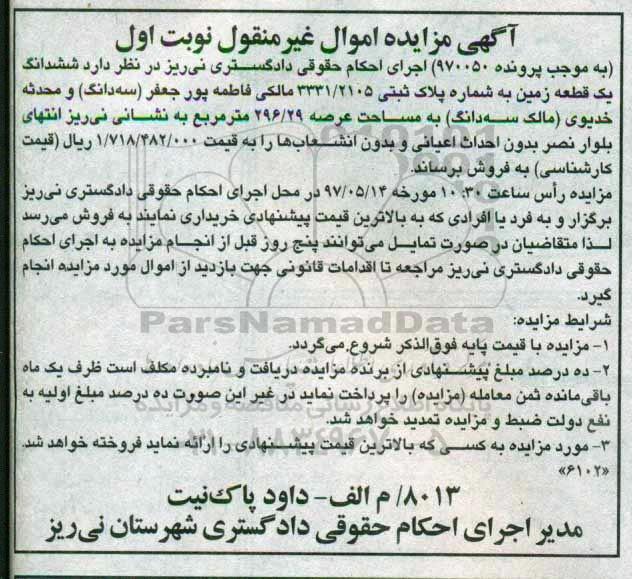 آگهی مزایده اموال غیرمنقول نوبت اول
(به موجب پرونده ۹۷۰۰۵۰) اجرای احکام حقوقی دادگستری نی‌ریز در نظر دارد ششدانگ
یک قطعه زمین به شماره پلاک ثبتی ۳۳۳۱/۲۱۰۵ مالکی فاطمه پور جعفر (سه‌دانگ) و محدثه
خدیوی (مالک سه‌دانگ) به مساحت عرصه ۲۹۶/۲۹ مترمربع به نشانی نی‌ریز انتهای
بلوار نصر بدون احداث اعیانی و بدون انشعاب‌ها را به قیمت ۱/۷۱۸/۴۸۲/۰۰۰ ریال (قیمت
کارشناسی) به فروش برساند.
مزایده رأس ساعت ۱۰:۳۰ مورخه ۹۷/۰۵/۱۴ در محل اجرای احکام حقوقی دادگستری نی‌ریز
برگزار و به فرد یا افرادی که به بالاترین قیمت پیشنهادی خریداری نمایند به فروش می‌رسد
لذا متقاضیان در صورت تمایل می‌توانند پنج روز قبل از انجام مزایده به اجرای احکام
حقوقی دادگستری نی‌ریز مراجعه تا اقدامات قانونی جهت بازدید از اموال مورد مزایده انجام
گیرد.
ParsNamadData
شرایط مزایده:
۱- مزایده با قیمت پایه فوق‌الذکر شروع می‌گردد.
۲- ده درصد مبلغ پیشنهادی از برنده مزایده دریافت و نامبرده مکلف است ظرف یک ماه
باقی‌مانده ثمن معامله (مزایده) را پرداخت نماید در غیر این صورت ده درصد مبلغ اولیه به
پایگاه اطلاع رسانی مناقصه و مزایده
نفع دولت ضبط و مزایده تمدید خواهد شد.
۰۲۱-۸۸۳۴۹۶۷۰-۵
۳- مورد مزایده به کسی که بالاترین قیمت پیشنهادی را ارائه نماید فروخته خواهد شد.
«۶۱۰۲»
۸۰۱۳/ م الف- داود پاک‌نیت
مدیر اجرای احکام حقوقی دادگستری شهرستان نی‌ریز